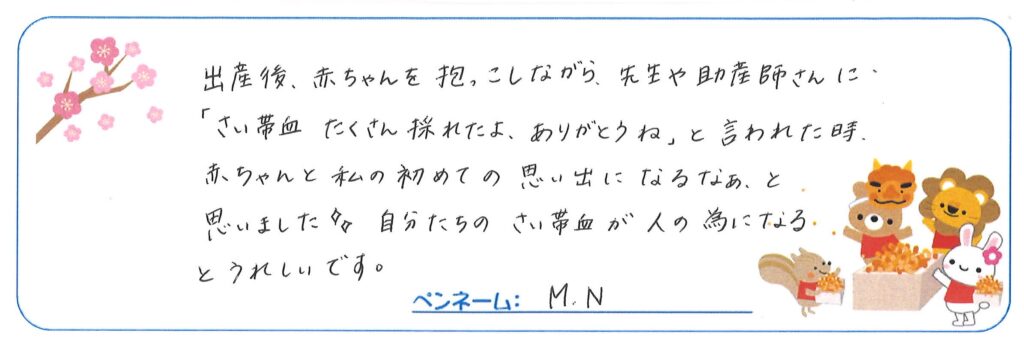 出産後、赤ちゃんを抱っこしながら、先生や助産師さんに、
「さい帯血 たくさん採れたよ、ありがとうね」と言われた時、
赤ちゃんと私の初めての思い出になるなぁ、と
思いました 自分たちの さい帯血が人の為になる
とうれしいです。
ペンネーム: M.N